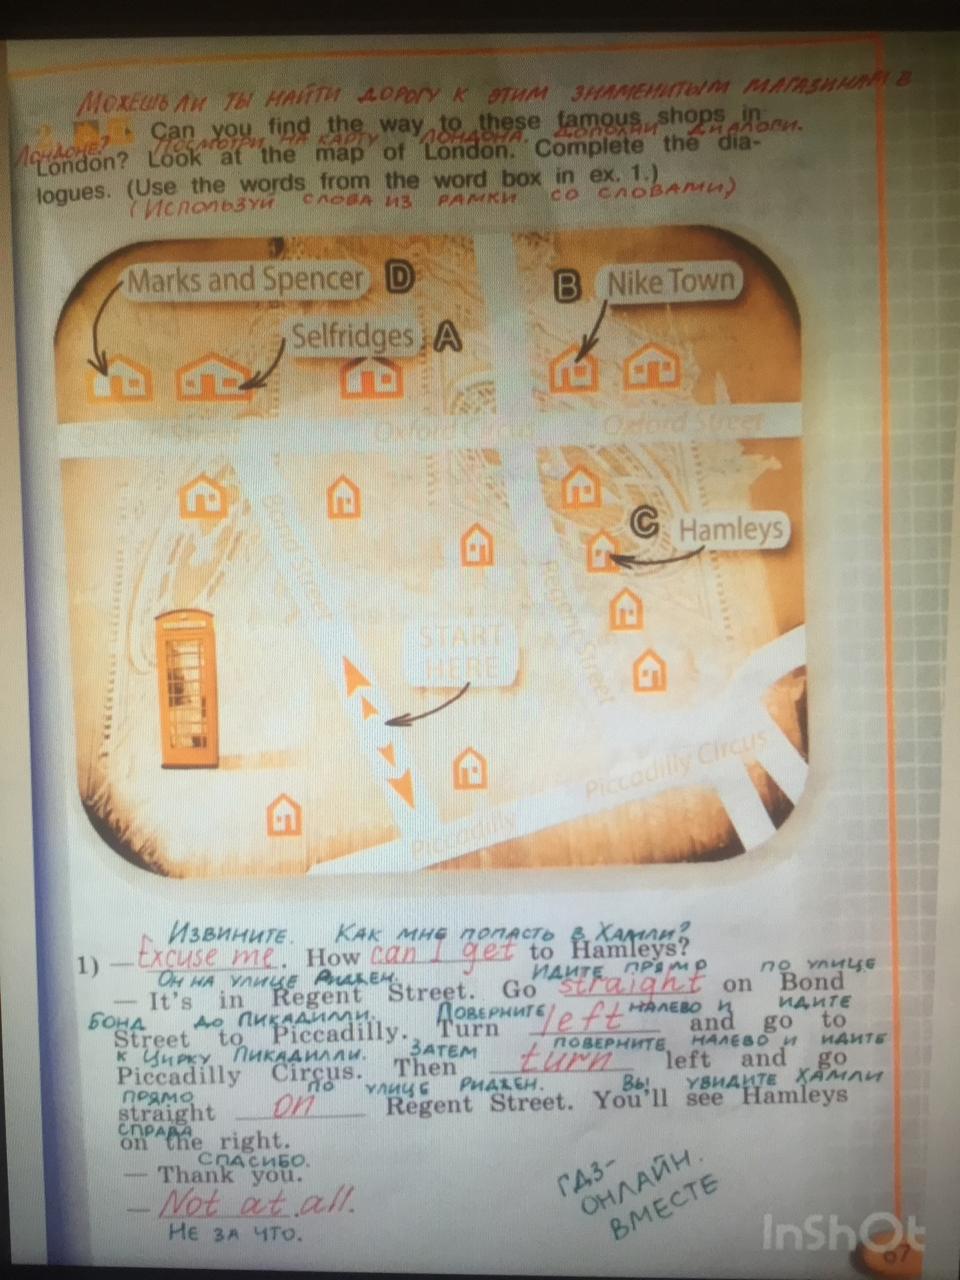 МОЖЕШЬ ЛИ ТЫ НАЙТИ ДОРОГУ К ЭТИМ ЗНАМЕНИТЫМ МАГАЗИНАМ В
Can you find the way to these famous shops in
ЛОНДОНЕ? ПОСМОТРИ НА КАРТУ ЛОНДОНА. ДОПОЛНИ ДИАЛОГИ.
London? Look at the map of London. Complete the dia-
logues. (Use the words from the word box in ex. 1.)
(ИСПОЛЬЗУЙ СЛОВА ИЗ РАМКИ СО СЛОВАМИ)
Marks and Spencer D
B Nike Town
Selfridges A
Oxford Street
Oxford Circus
Oxford Street
Bond Street
C Hamleys
Regent Street
START
HERE
Piccadilly Circus
Piccadilly
ИЗВИНИТЕ. КАК МНЕ ПОПАСТЬ В ХАМЛИ?
1) — Excuse me. How can I get to Hamleys?
ОН НА УЛИЦЕ РИДЖЕН. ИДИТЕ ПРЯМО ПО УЛИЦЕ
— It's in Regent Street. Go straight on Bond
БОНД ДО ПИКАДИЛЛИ. ПОВЕРНИТЕ НАЛЕВО И ИДИТЕ
Street to Piccadilly. Turn left and go to
К ЦИРКУ ПИКАДИЛЛИ. ЗАТЕМ ПОВЕРНИТЕ НАЛЕВО И ИДИТЕ
Piccadilly Circus. Then turn left and go
ПРЯМО ПО УЛИЦЕ РИДЖЕН. ВЫ УВИДИТЕ ХАМЛИ
straight on Regent Street. You'll see Hamleys
СПРАВА
on the right.
СПАСИБО.
— Thank you.
— Not at all.
НЕ ЗА ЧТО.
ГДЗ-
ОНЛАЙН.
ВМЕСТЕ
InShOt
67